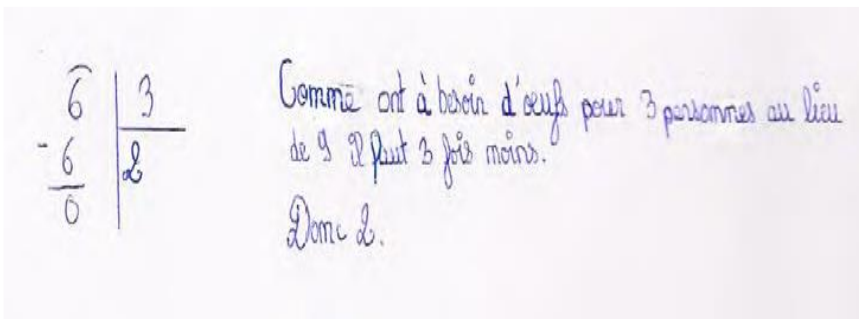 6 | 3
- 6 | 2
0
Comme ont à besoin d'œufs pour 3 personnes au lieu
de 9 Il faut 3 fois moins.
Donc 2.